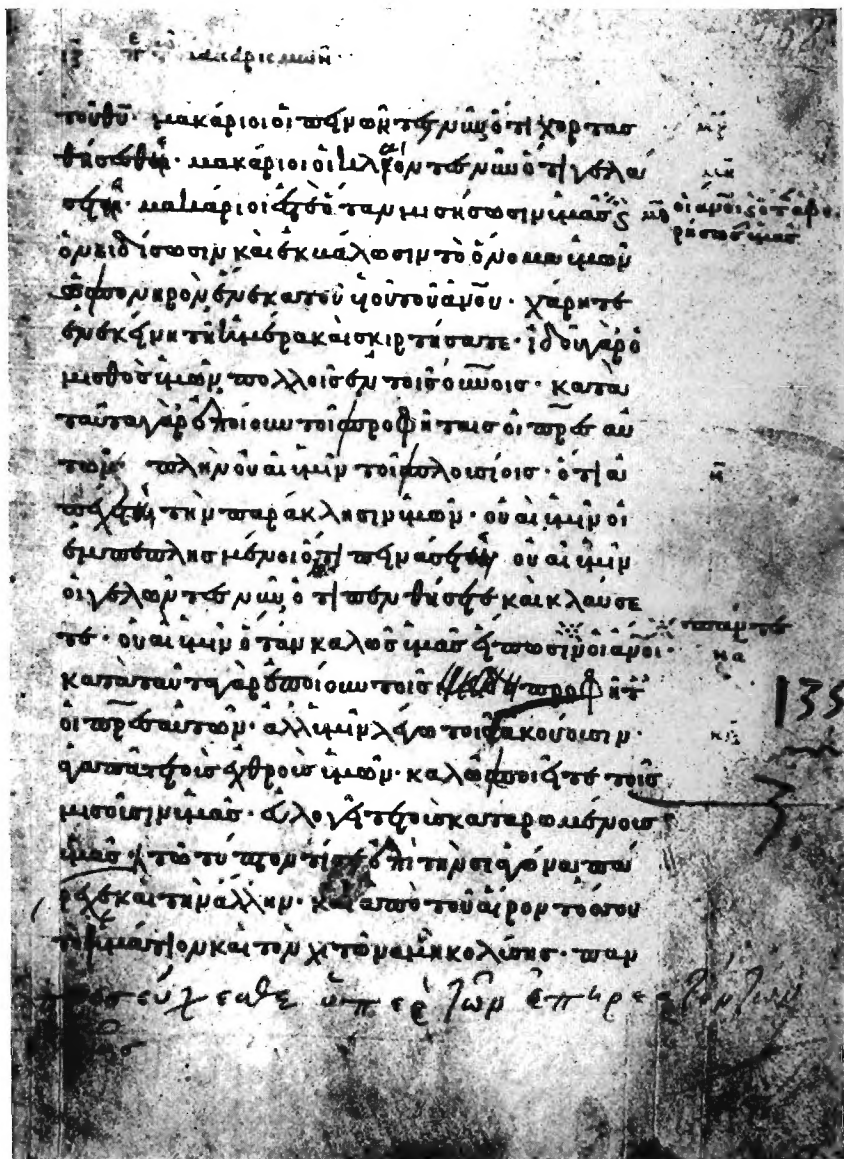 περὶ τῶν μακαρισμῶν
τοῦ θῦ· μακάριοι οἱ πεινῶντες νῦν ὅτι χορτασ
θήσεσθε· μακάριοι οἱ κλαίοντες νῦν ὅτι γελά
σετε· μακάριοί ἐστε ὅταν μισήσωσιν ὑμᾶς καὶ
οἱ ἄνοι καὶ ὅταν ἀφο
ρήσωσιν ὑμᾶς
ὀνειδίσωσιν καὶ ἐκβάλωσιν τὸ ὄνομα ὑμῶν
ὡς πονηρὸν ἕνεκα τοῦ υἱοῦ τοῦ ἀνου· χάρητε
ἐν ἐκείνη τῆ ἡμέρα καὶ σκιρτήσατε· ἰδοὺ γὰρ ὁ
μισθὸς ὑμῶν πολλοῖς ἐν τοῖς οὐνοῖς· κατὰ
ταῦτα γὰρ ἐποίουν τοῖς προφήταις οἱ πρες αὐ
τῶν· πλὴν οὐαὶ ὑμῖν τοῖς πλουσίοις· ὅτι ἀ
πέχετε τὴν παράκλησιν ὑμῶν· οὐαὶ ὑμῖν οἱ
ἐμπεπλησμένοι ὅτι πεινάσετε οὐαὶ ὑμῖν
οἱ γελῶντες νῦν ὅτι πενθήσετε καὶ κλαύσε
πάντες
τε· οὐαὶ ὑμῖν ὅταν καλῶς ὑμᾶς εἴπωσιν οἱ ἄνοι·
κατὰ ταῦτα γὰρ ἐποίουν τοῖς προφήτ
οἱ πρες αὐτῶν· ἀλλ' ὑμῖν λέγω τοῖς ἀκούουσιν·
135
ἀγαπᾶτε τοὺς ἐχθροὺς ὑμῶν· καλῶς ποιεῖτε τοῖς
μισοῦσιν ὑμᾶς· εὐλογεῖτε τοὺς καταρωμένους
ὑμᾶς· τῶ τύπτοντί σε ἐπὶ τὴν σιαγόνα πά
ρεχε καὶ τὴν ἄλλην· καὶ ἀπὸ τοῦ αἴροντός σου
τὸ ἱμάτιον καὶ τὸν χιτῶνα μὴ κολύσης· παν
προσεύχεσθε ὑπὲρ τῶν ἐπηρεαζόντων